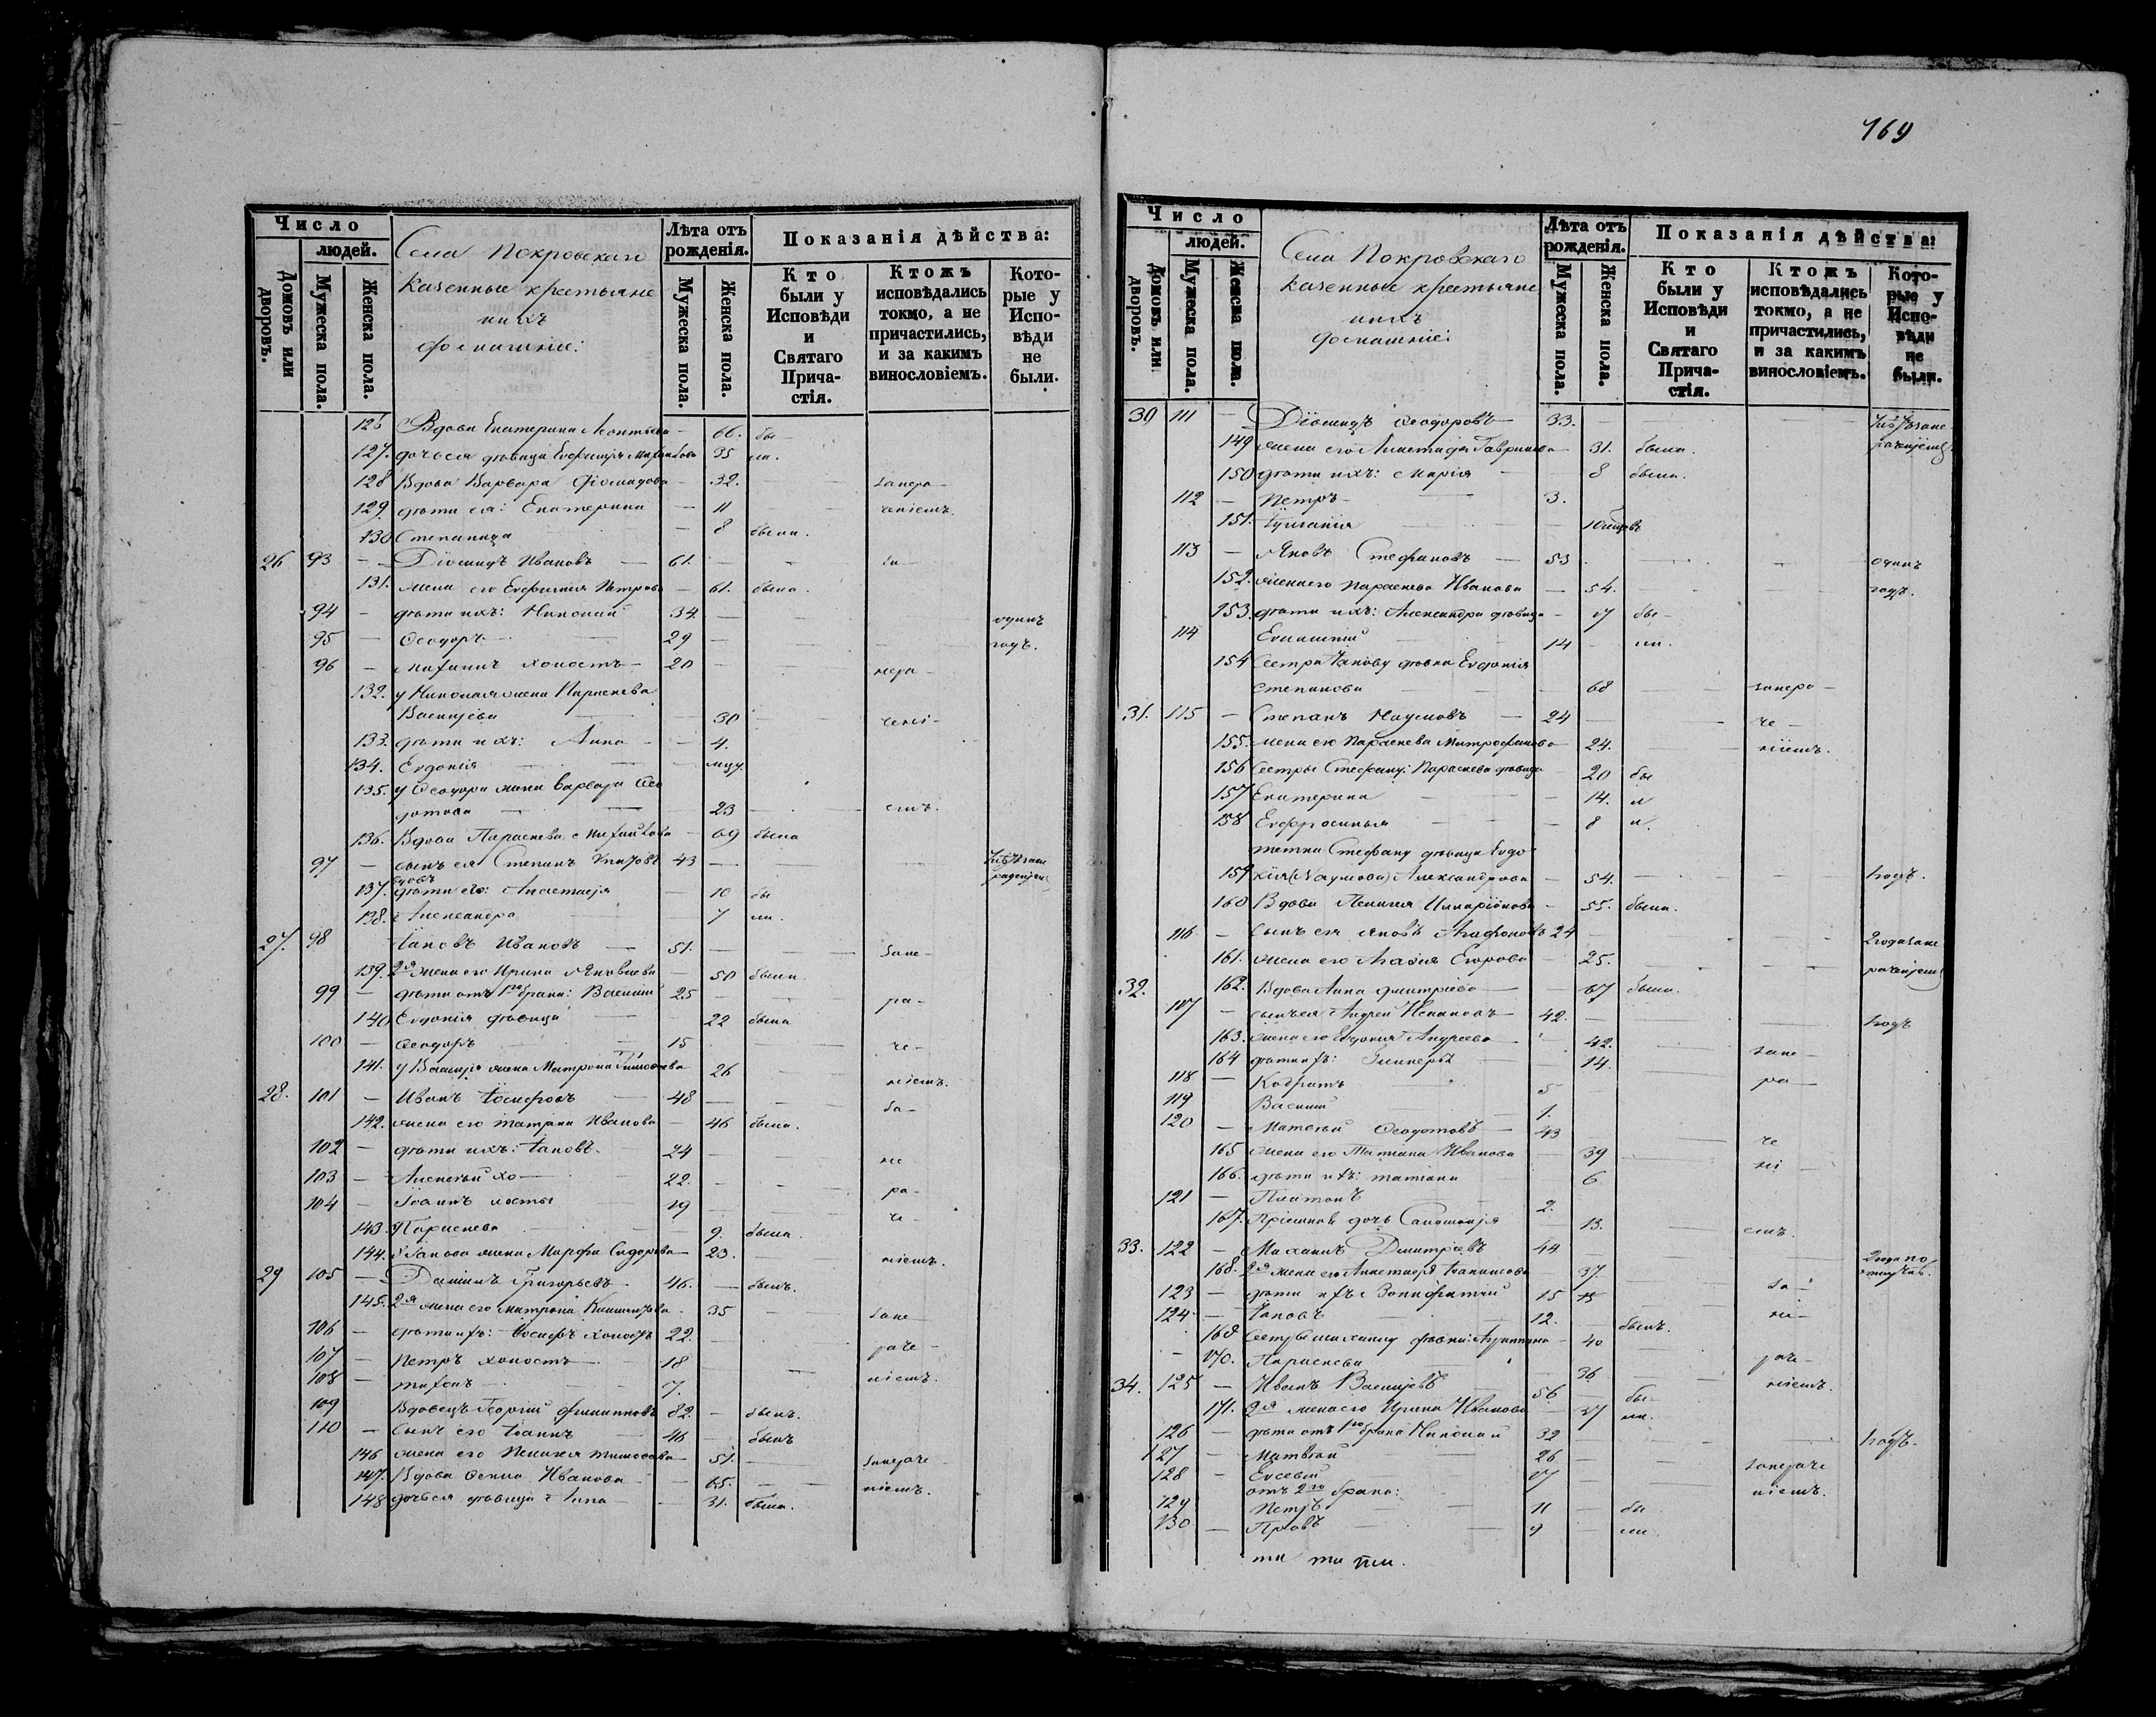 169
Число
людей.
Домовъ или дворовъ.
Мужеска пола.
Женска пола.
Села Покровскаго
казенные крестьяне
и ихъ
домашніе:
Лѣта отъ рожденія.
Мужеска пола.
Женска пола.
Показанія дѣйства:
Кто были у Исповѣди и Святаго Прича-стія.
Ктожъ исповѣдались токмо, а не причастились, и за какимъ винословіемъ.
Кото-рые у Испо-вѣди не были.
126 Вдова Екатерина Леонтьева — 66. бы—
127. дочь ея дѣвица Евфимія 35 ли.
128 Вдова Варвара Діомидова — 32. занера—
129. дѣти ея: Екатерина — 11 ченіемъ.
130 Степанида — 8 была.
26 93 — Діомидъ Ивановъ — 61. — за—
131. жена его Евфимія Петрова — 61. была.
94 — дѣти ихъ: Николай 34. — одинъ
95 — Ѳеодоръ — 29 — годъ.
96 — Михаилъ холостъ — 20 — нера—
132. у Николая жена Параскева
Васильева — 30 — чені—
133. дѣти ихъ: Анна — 4.
134. Евдокія —
135. у Ѳеодора жена Варвара Ѳео
дотова — 23 — емъ.
136. Вдова Параскева Михайлова — 69 была
97 — сынъ ея Степанъ 43 —
137. дѣти его: Анастасія — 10 бы
138. Александра 7 ли.
27. 98 Іаковъ Ивановъ — 51. — зане—
139. 2я жена его Ирина Яковлева — 50 была.
99 — дѣти отъ 1го брака: Василій 25 — ра—
140 Евдокія дѣвица 22 была
100 — Ѳеодоръ 15 че—
141. у Василія жена Матрона Тимоѳеева 26 ніемъ.
28. 101 — Иванъ Іосифовъ — 48 — за—
142. жена его Татіана Иванова — 46 была.
102 — дѣти ихъ: Іаковъ. 24 — не
103 — Алексѣй хо— 22. — ра—
104 — Іоаннъ лосты 19 че—
143. Параскева 9. была.
144. у Іакова жена Марфа Сидорова — 23. ніемъ.
29 105 — Даніилъ Григорьевъ — 46. — былъ.
145. 2я жена его Матрона 35 зане—
106 — дѣти ихъ: Іосифъ холостъ 22. — раче—
107 — Петръ холостъ — 18 ніемъ.
108 — Тихонъ — 7.
109 Вдовецъ Георгій Филипповъ 82. — былъ.
110 — сынъ его Іоаннъ — 46 былъ
146 жена его Пелагея Тимоѳеева 51. — занераче—
147. Вдова Ѳекла Иванова — 65. — ніемъ.
148 дочь ея дѣвица Анна — 31. была.
Число
людей.
Домовъ или дворовъ.
Мужеска пола.
Женска пола.
Села Покровскаго
казенные крестьяне
и ихъ
домашніе:
Лѣта отъ рожденія.
Мужеска пола.
Женска пола.
Показанія дѣйства:
Кто были у Исповѣди и Святаго Прича-стія.
Ктожъ исповѣдались токмо, а не причастились, и за какимъ винословіемъ.
Кото-рые у Испо-вѣди не были.
30 111 — Діомидъ Ѳеодоровъ — 33. —
149 жена его Анастасія Гаврилова — 31. была.
150 дѣти ихъ: Марія — 8 была.
112 — Петръ — 3.
151. Іуліанія —
113 — Яковъ Стефановъ — 53 — одинъ
152. жена его Параскева Иванова — 54. — годъ.
153. дѣти ихъ: Александра дѣвица — 17 бы—
114 Евлампій 14 — ли.
154 Сестра Іакову дѣвка Евдокія
Степанова — 68 — занера—
31. 115 — Степанъ Наумовъ — 24 — че—
155. жена его Параскева Митрофанова — 24. — ніемъ.
156 Сестры Стефану: Параскева дѣвица 20 бы
157 Екатерина — 14. л
158 Евфросинья — 8 и.
тетка Стефану дѣвица Евдо
159 кія (Наумова) Александрова — 54. — 1годъ.
160 Вдова Пелагея Иларіонова — 55. была.
116 — Сынъ ея Яковъ Агафоновъ 24 — 2года зане
161. жена его Агафія Егорова 25. — раченіемъ
32. 162. Вдова Анна Дмитріева — 67 была.
107 — сынъ ея Андрей 42. — 1годъ
163. жена его Евдокія Андреева — 42. зане—
164 дѣти ихъ: Гликерія 14. ра—
118 — Кодратъ 5
119 Василій 1.
120 — Матѳей Ѳеодотовъ — 43 че
165 жена его Татіана Иванова 39 ні—
166. дѣти ихъ: Татіана 6
121 — Платонъ 2.
167. Пріемная дочь Саломонія — 13. емъ.
33. 122 — Михаилъ Дмитріевъ 44 — 2года по
168. 2я жена его Анастасія 37. за— отлучкѣ.
123 — дѣти ихъ: Вонифатій 15
124 — Іаковъ 12. — былъ. не—
169 Сестры Михаилу дѣвки: Агрипина — 40
170. Параскева 36 раче—
34. 125 — Иванъ Васильевъ 56. — бы— ніемъ.
171. 2я жена его Ирина Иванова 37 ли.
126 — дѣти отъ 1го брака Николай 32 — 1годъ.
127 — Матвѣй 26 — занераче
128 — Евсевій 17 — ніемъ.
отъ 2го брака:
129 Петръ 11 — бы
130 — Провъ — 9 — ли